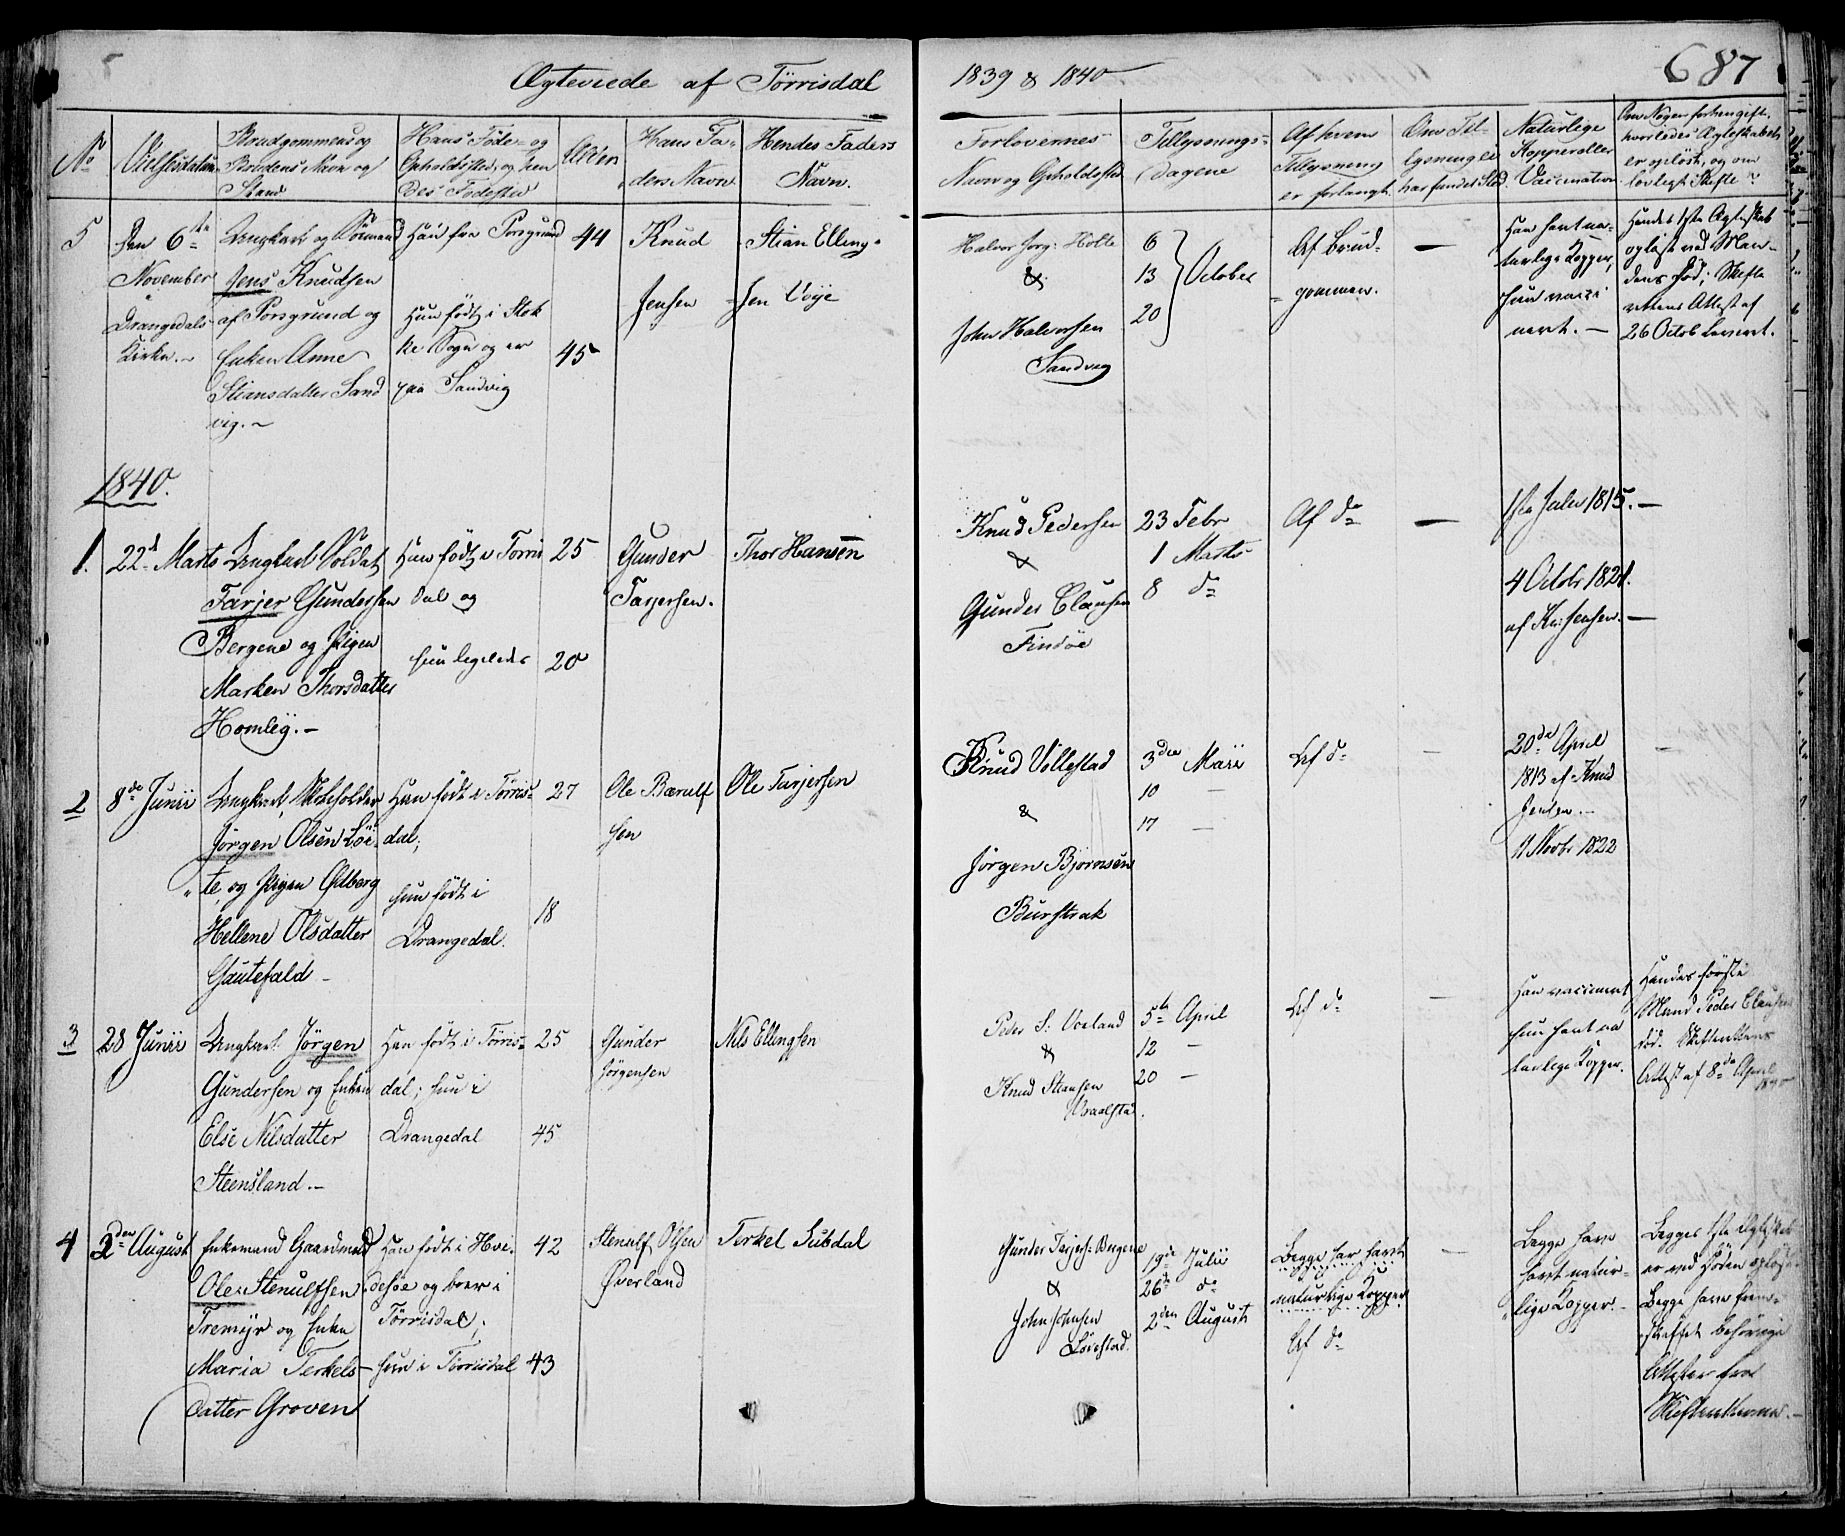 Ægteviede af Tørrisdal
1839 & 1840
687
No
Vielsesdatum
Brudgommens og
Brudens Navn og
Stand
Hans Føde- og
Opholdssted, og hen
des Fødested
Alder
Hans Fa-
ders Navn
Hendes Faders
Navn.
Forlovernes
Navn og Opholdsted
Tillysnings-
dagene
Af hvem
Tillysning
er forlangt
Om Til-
lysning ei
har fundet Sted.
Naturlige
Kopper eller
Vaccination
Om Nogen for hen gift,
hvorledes Ægteskabet
er opløst, og om
lovligt Skifte
5
Den 6te
November
i
Drangedals-
Kirke.-
Ungkarl og Sømand
Jens Knudsen
af Porsgrund og
Enken Anne
Stiansdatter Sand
vig.-
Han fra Porsgrund
Hun født i Stok
ke Sogn og er
paa Sandvig
44
45
Knud
Jensen
Stian Elling-
sen Voje
Halvor Jørg: Holte
&
John Halvorsen
Sandvig
6
13
20
October
Af Brud-
gommen.
-
Han havt na-
turlige Kopper,
hun vacci
nert.-
Hendes 1ste Ægteskab
opløst ved Man-
dens Død; Skifte
rettens Attest af
26 Octob leveret.
1840.
1.
22d Marts
Ungkarl Soldat
Tarjer Gundersen
Bergene og Pigen
Marken Thorsdatter
Homlig.-
Han født i Tørris
dal og
hun ligeledes
25
20
Gunder
Tarjersen.
Thor Hansen
Knud Pedersen
&
Gunder Clausen
Findøe
23 Febr
1 Marts
8 do
Af do
-
1ste Julii 1815.-
4 Octobr 1821.
af Kn: Jensen.-
2
8de Junii
Ungkarl,
Jørgen Olsen Løi-
te, og Pigen Ødberg
Hellene Olsdatter
Gautefald-
Han født i Tørris-
dal;
hun født i
Drangedal.
27
18
Ole Bærulf
sen
Ole Tarjersen
Knud Vøllestad
&
Jørgen Bjørensen
Burstrak
3die Maii
10 -
17 -
Af do
-
20de April
1813 af Knud
Jensen.-
11 Novbr 1822
-
3
28 Junii
Ungkarl Jørgen
Gundersen og Enken
Else Nilsdatter
Steensland.-
Han født i Tørris-
dal; hun i
Drangedal
25
45
Gunder
Jørgensen
Nils Ellingsen
Peder S: Voxland
&
Knud Stiansen
Vraalstad.
5te April
12 -
20 -
Af do
-
Han vaccinert
hun havt na
turlige Kopper.
Hendes første
Mand Peder Clausen
død. Skifterettens
Attest af 8de April
1840
4
2den August
Enkemand Gaardmand
Ole Stenulfsen
Tremyr og Enke
Maria Terkels-
datter Groven
Han født i Hvi-
desøe og boer i
Tørrisdal;
hun i Tørrisdal
42
43
Stenulf Olsen
Øverland
Terkel Subdal
Gunder Tarjers: Bergene
&
John Johnsen
Løvestad.
19de Julii
26de do
2den August
Begge har havt
naturlige Kopper
Af do
-
Begge have
havt natur-
lige Kopper.-
Begges 1ste Ægteskab
er ved Døden opløst.
Begge have frem-
skaffet behørige
Attester fra
Skifteretterne.-